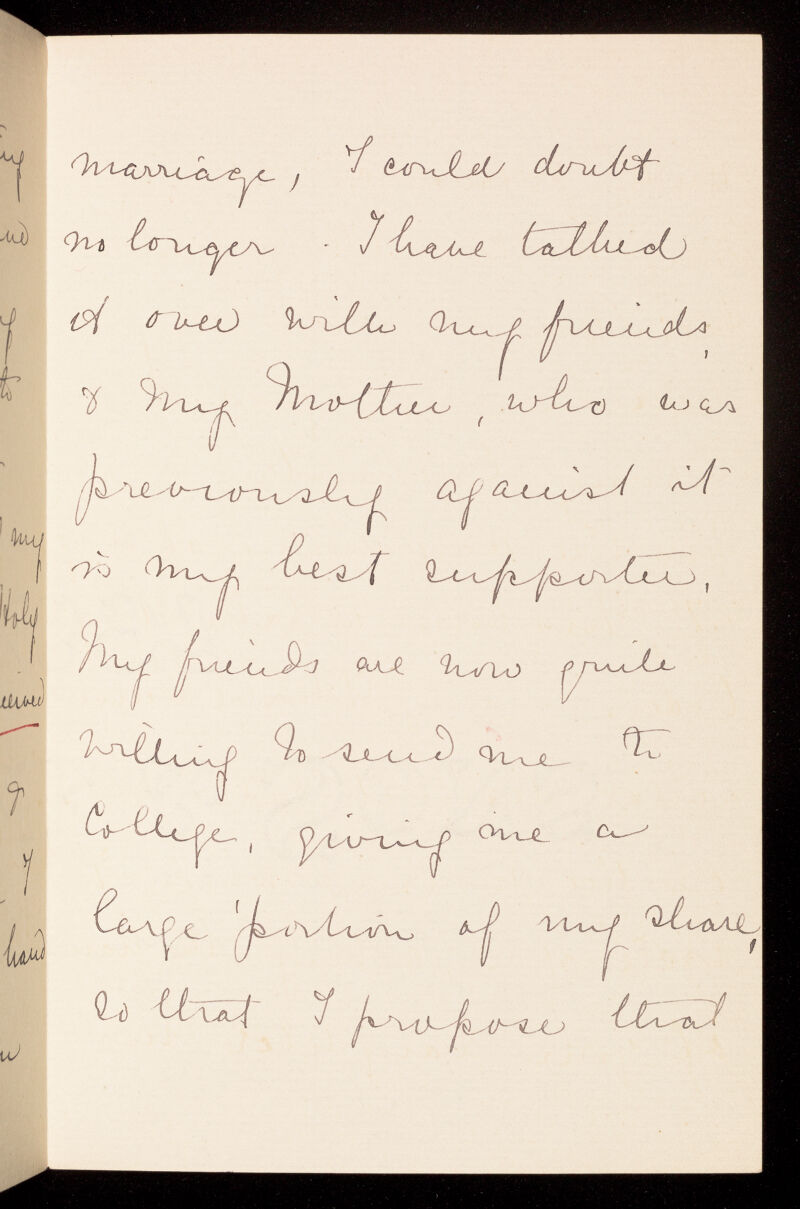 marriage, I could doubt
no longer. I have talked
it over with my friends,
& my Mother, who was
previously against it
is my best supporter.
My friends are now quite
willing to send me to
College, giving me a
large portion of my share,
so that I propose that
my
Holy
&
I
hand